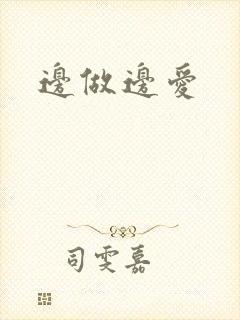 邊做邊愛
司雯嘉